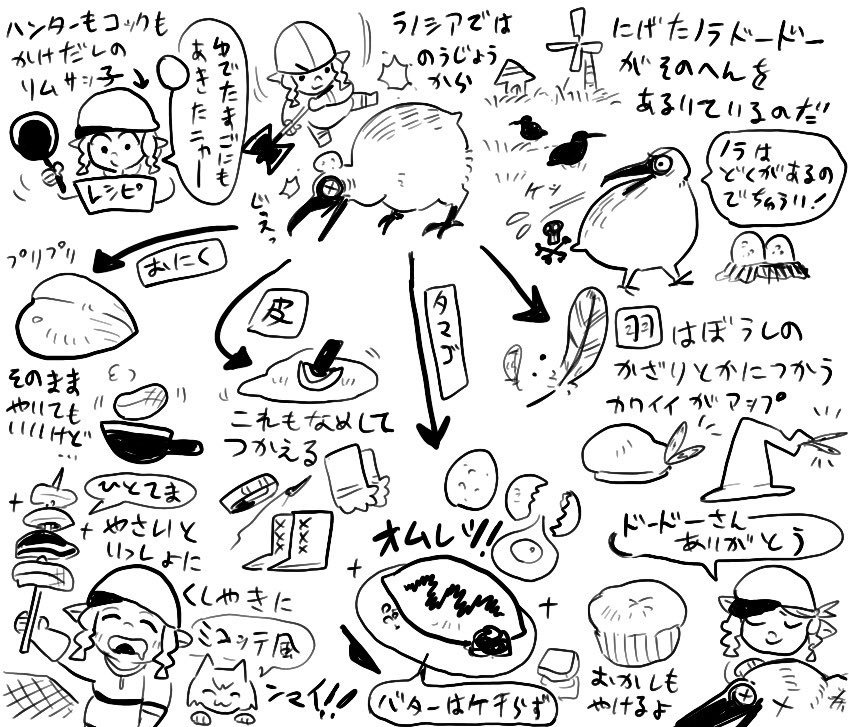 ハンターもコックも
かけだしの
リムサッ子
レシピ
ゆでたまごにも
あきたニャー
ラノシアでは
のうじょう
から
にげたノラドードー
がそのへんを
あるいているのだ
ノラは
どくがあるの
でちゅうい!
ケッ
プリプリ
おにく
皮
タマゴ
羽
はぼうしの
かざりとかにつかう
カワイイがアップ
そのまま
やいても
いいけど
これもなめして
つかえる
ひとてま
やさいと
いっしょに
くしやきに
ミコッテ風
ンマイ!!
オムレツ!!
バターはケチらず
ドードーさん
ありがとう
おかしも
やけるよ